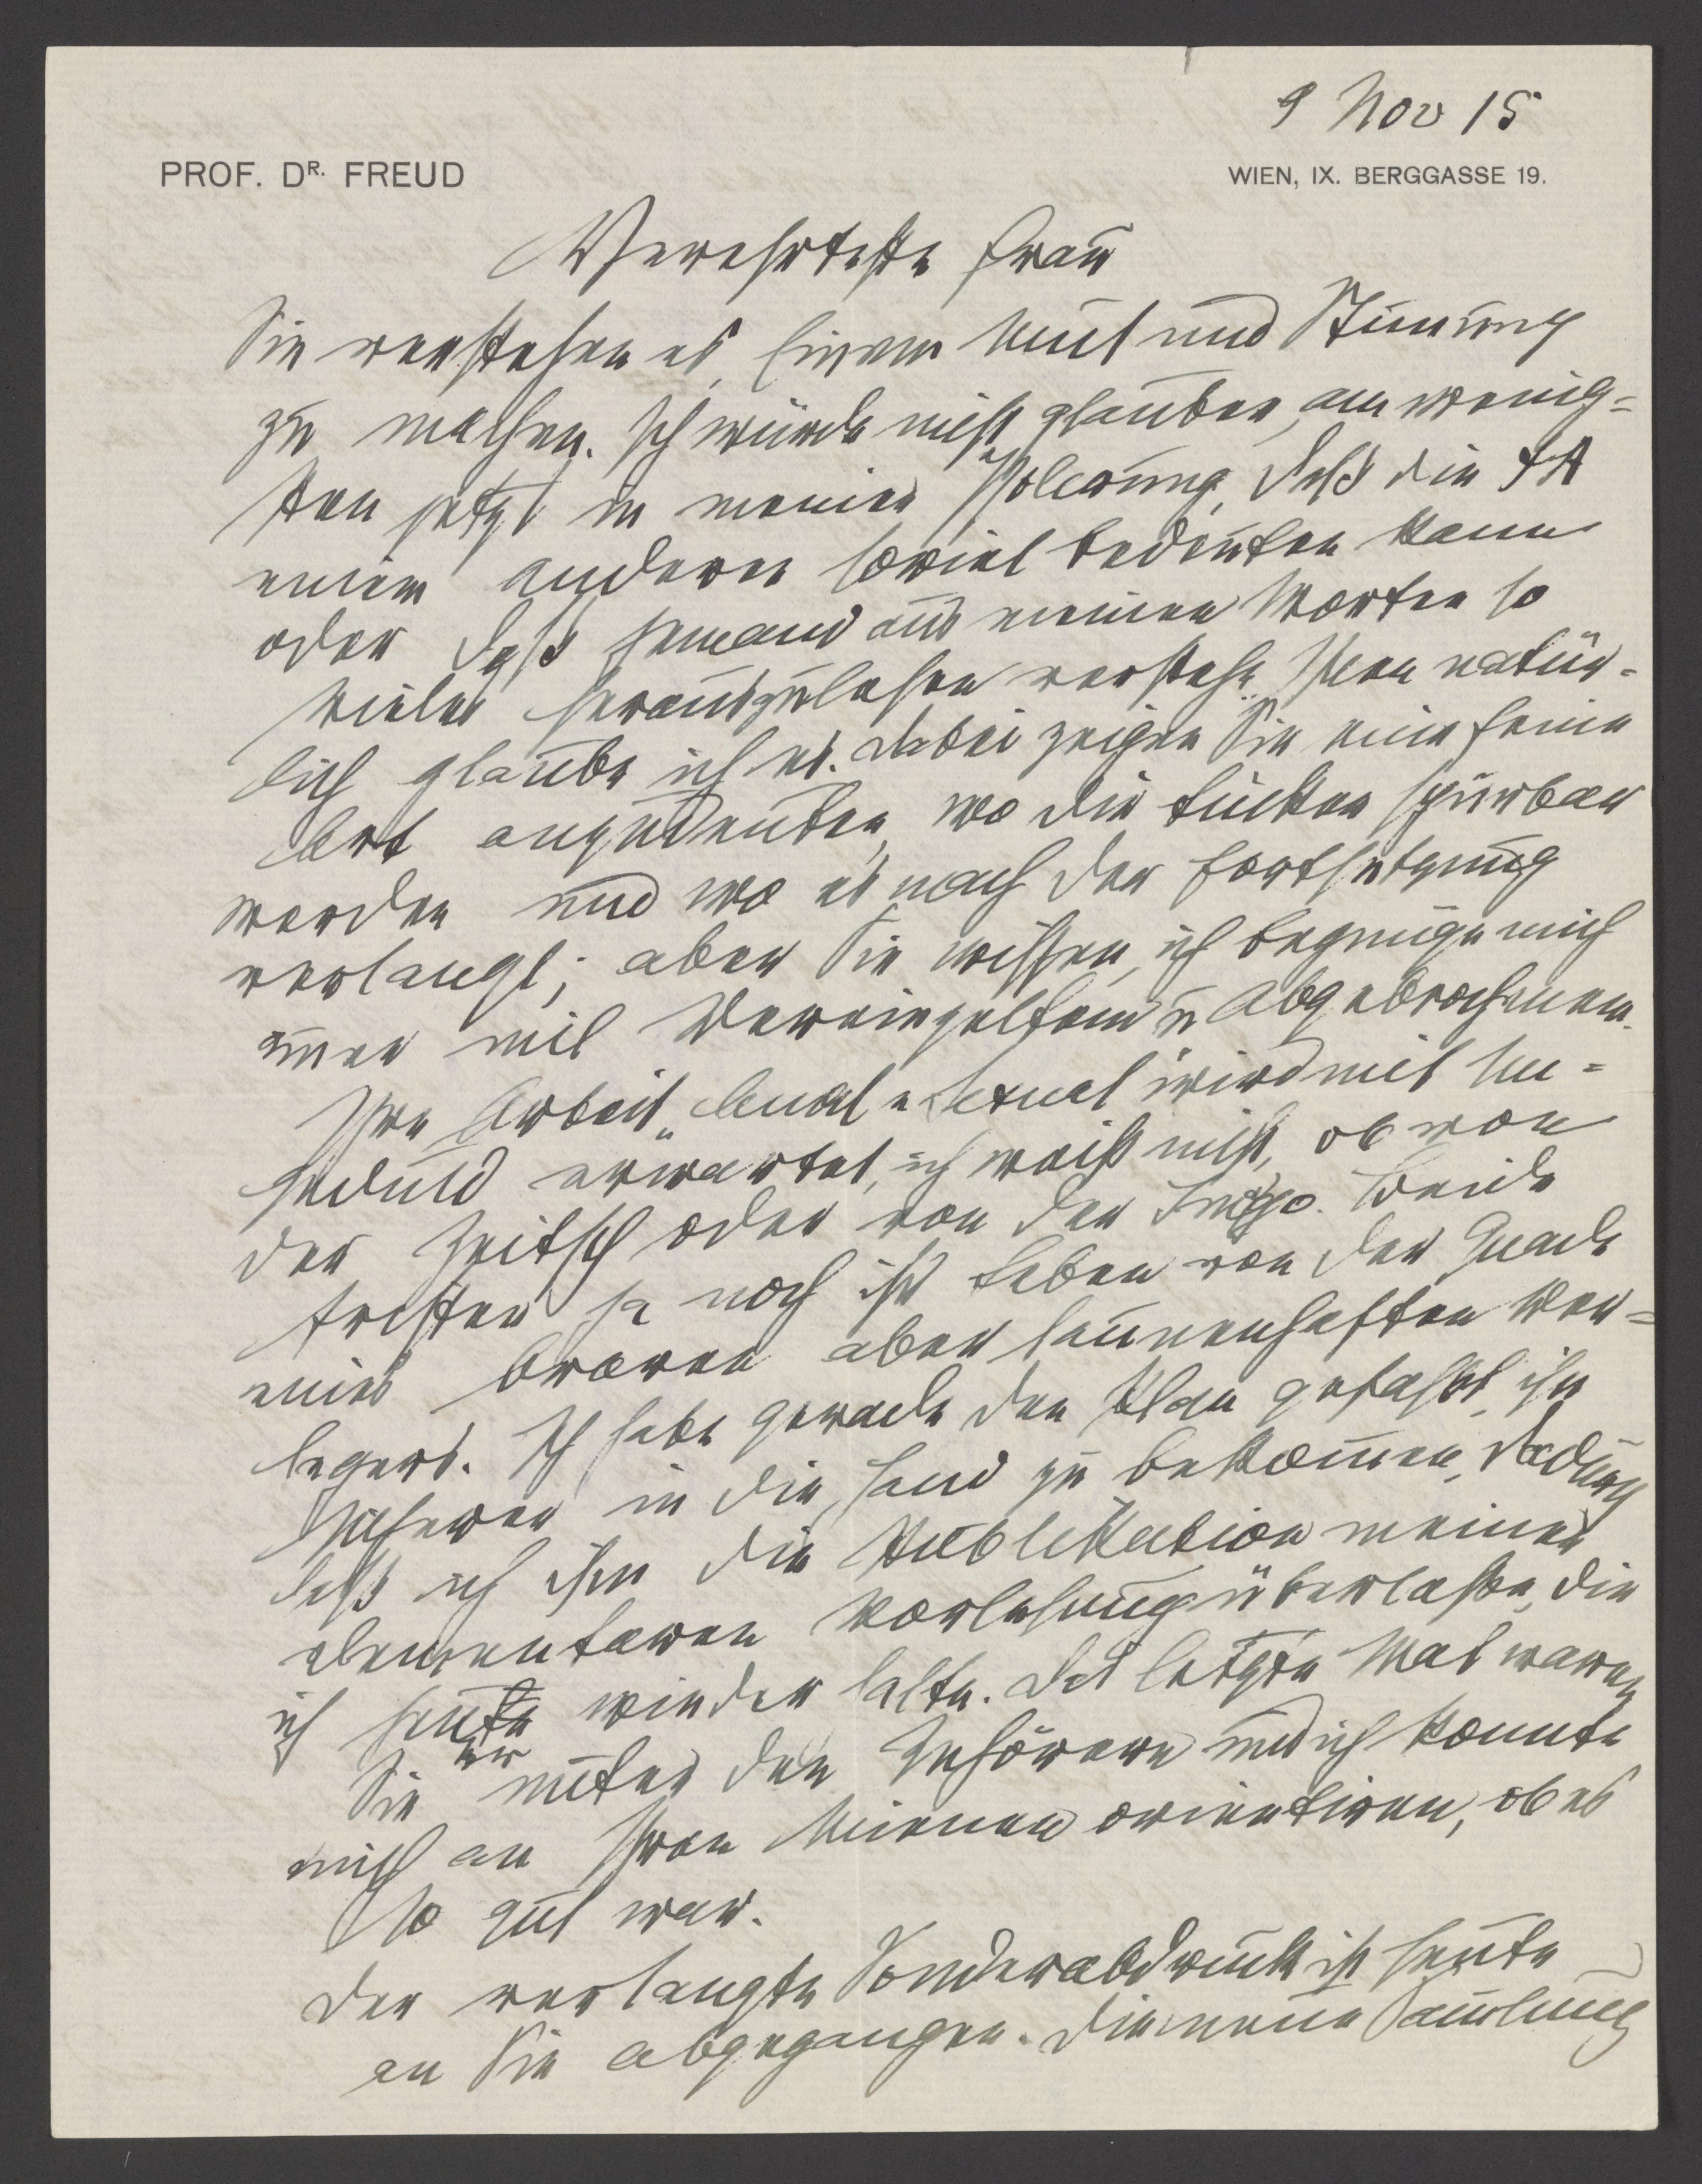 9 Nov 15
PROF. DR. FREUD
WIEN, IX. BERGGASSE 19.
Verehrteste Frau
Sie verstehen es, Einem Mut und Stimung
zu machen. Ich würde nicht glauben, am wenig=
sten jetzt in meiner Isolierung, daß die ΨA
einem anderen soviel bedeuten kann
oder daß jemand aus meinen Worten so
vieles herauszulesen verstehe. Ihnen natür-
lich glaube ich es. Dabei zeigen Sie eine feine
Art anzudeuten, wo die Lücken spürbar
werden und wo es nach der Fortsetzung
verlangt; aber Sie wissen, ich begnüge mich
imer mit Vereinzeltem u Abgebrochenem.
Ihre Arbeit „Anal u Sexual" wird mit Un=
geduld erwartet, ich weiß nicht, ob von
der Zeitsch oder von der Imago. Beide
fristen ja noch ihr Leben von der Gnade
eines braven aber launenhaften Ver=
legers. Ich habe gerade den Plan gefaßt, ihn
sicherer in die Hand zu bekomen, dadurch
daß ich ihm die Publikation meiner
elementaren Vorlesung überlasse, die
ich heuer wieder halte. Das letzte Mal waren
Sie unter den Zuhörern und ich konnte
mich an Ihren Mienen orientiren, ob es
so gut war.
Der verlangte Sonderabdruck ist heute
an Sie abgegangen. Die neue Samlung